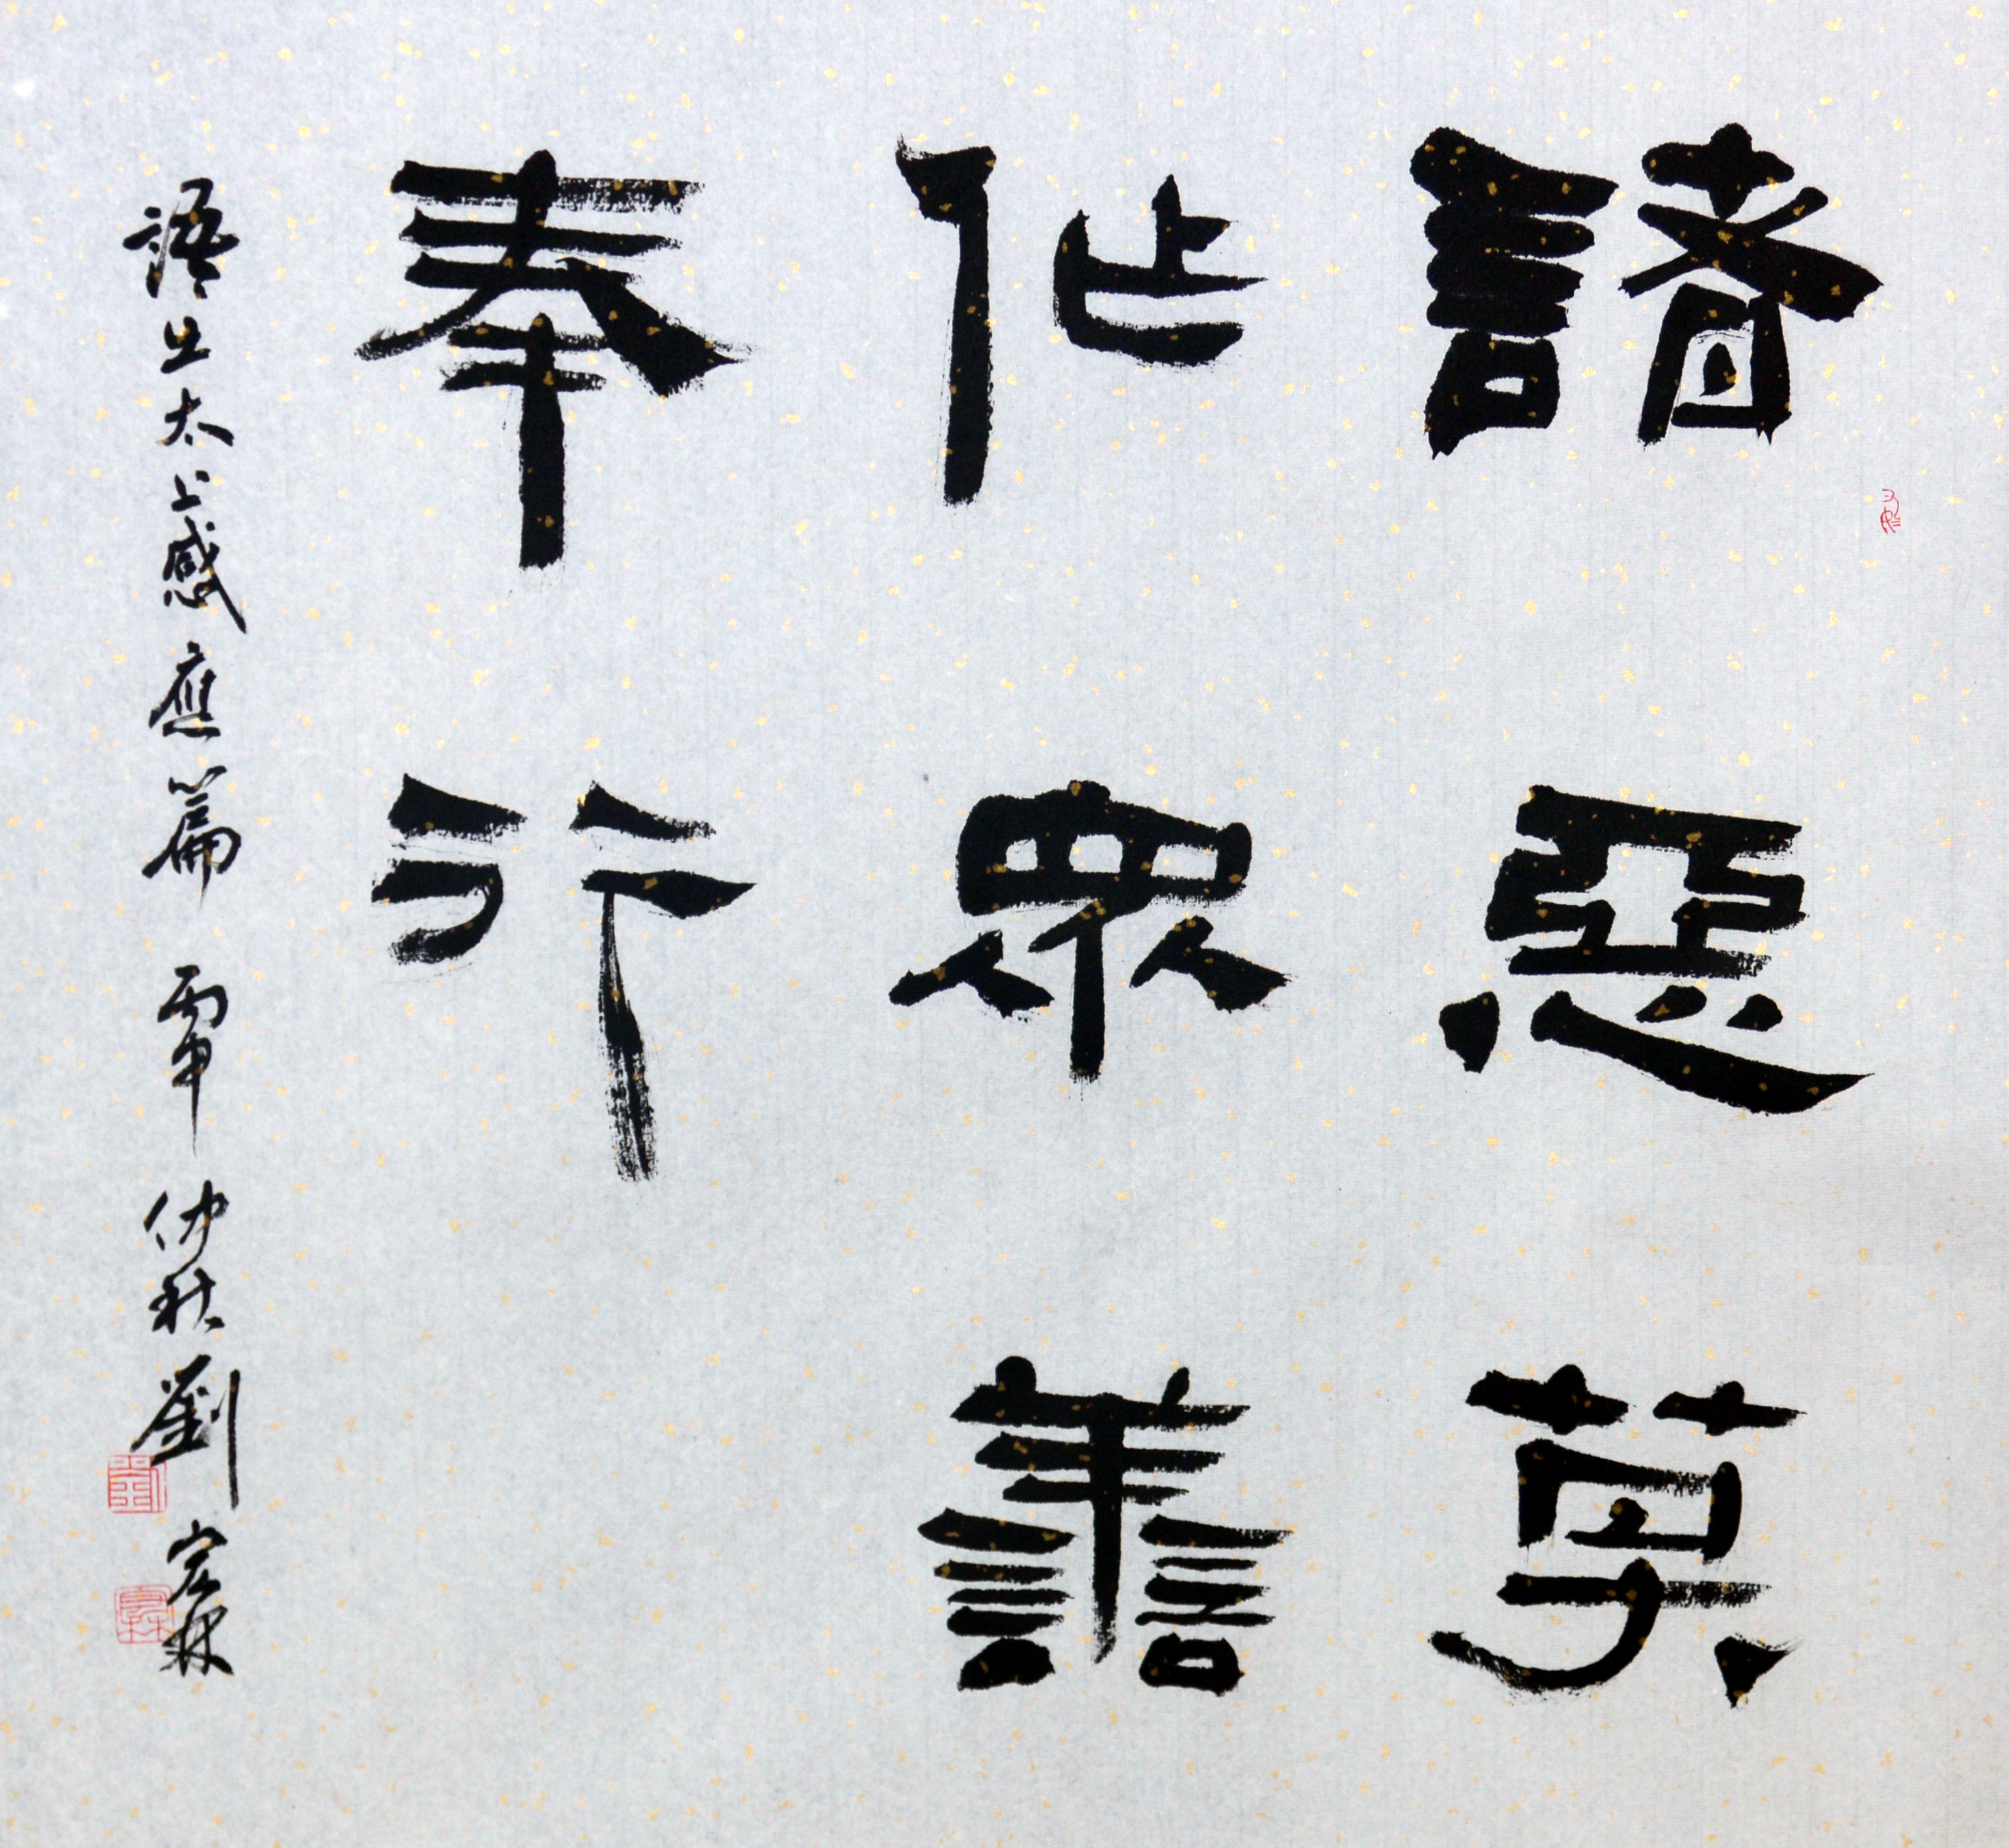 諸惡莫
作眾善
奉行
語出太上感應篇 丙申仲秋劉宏林